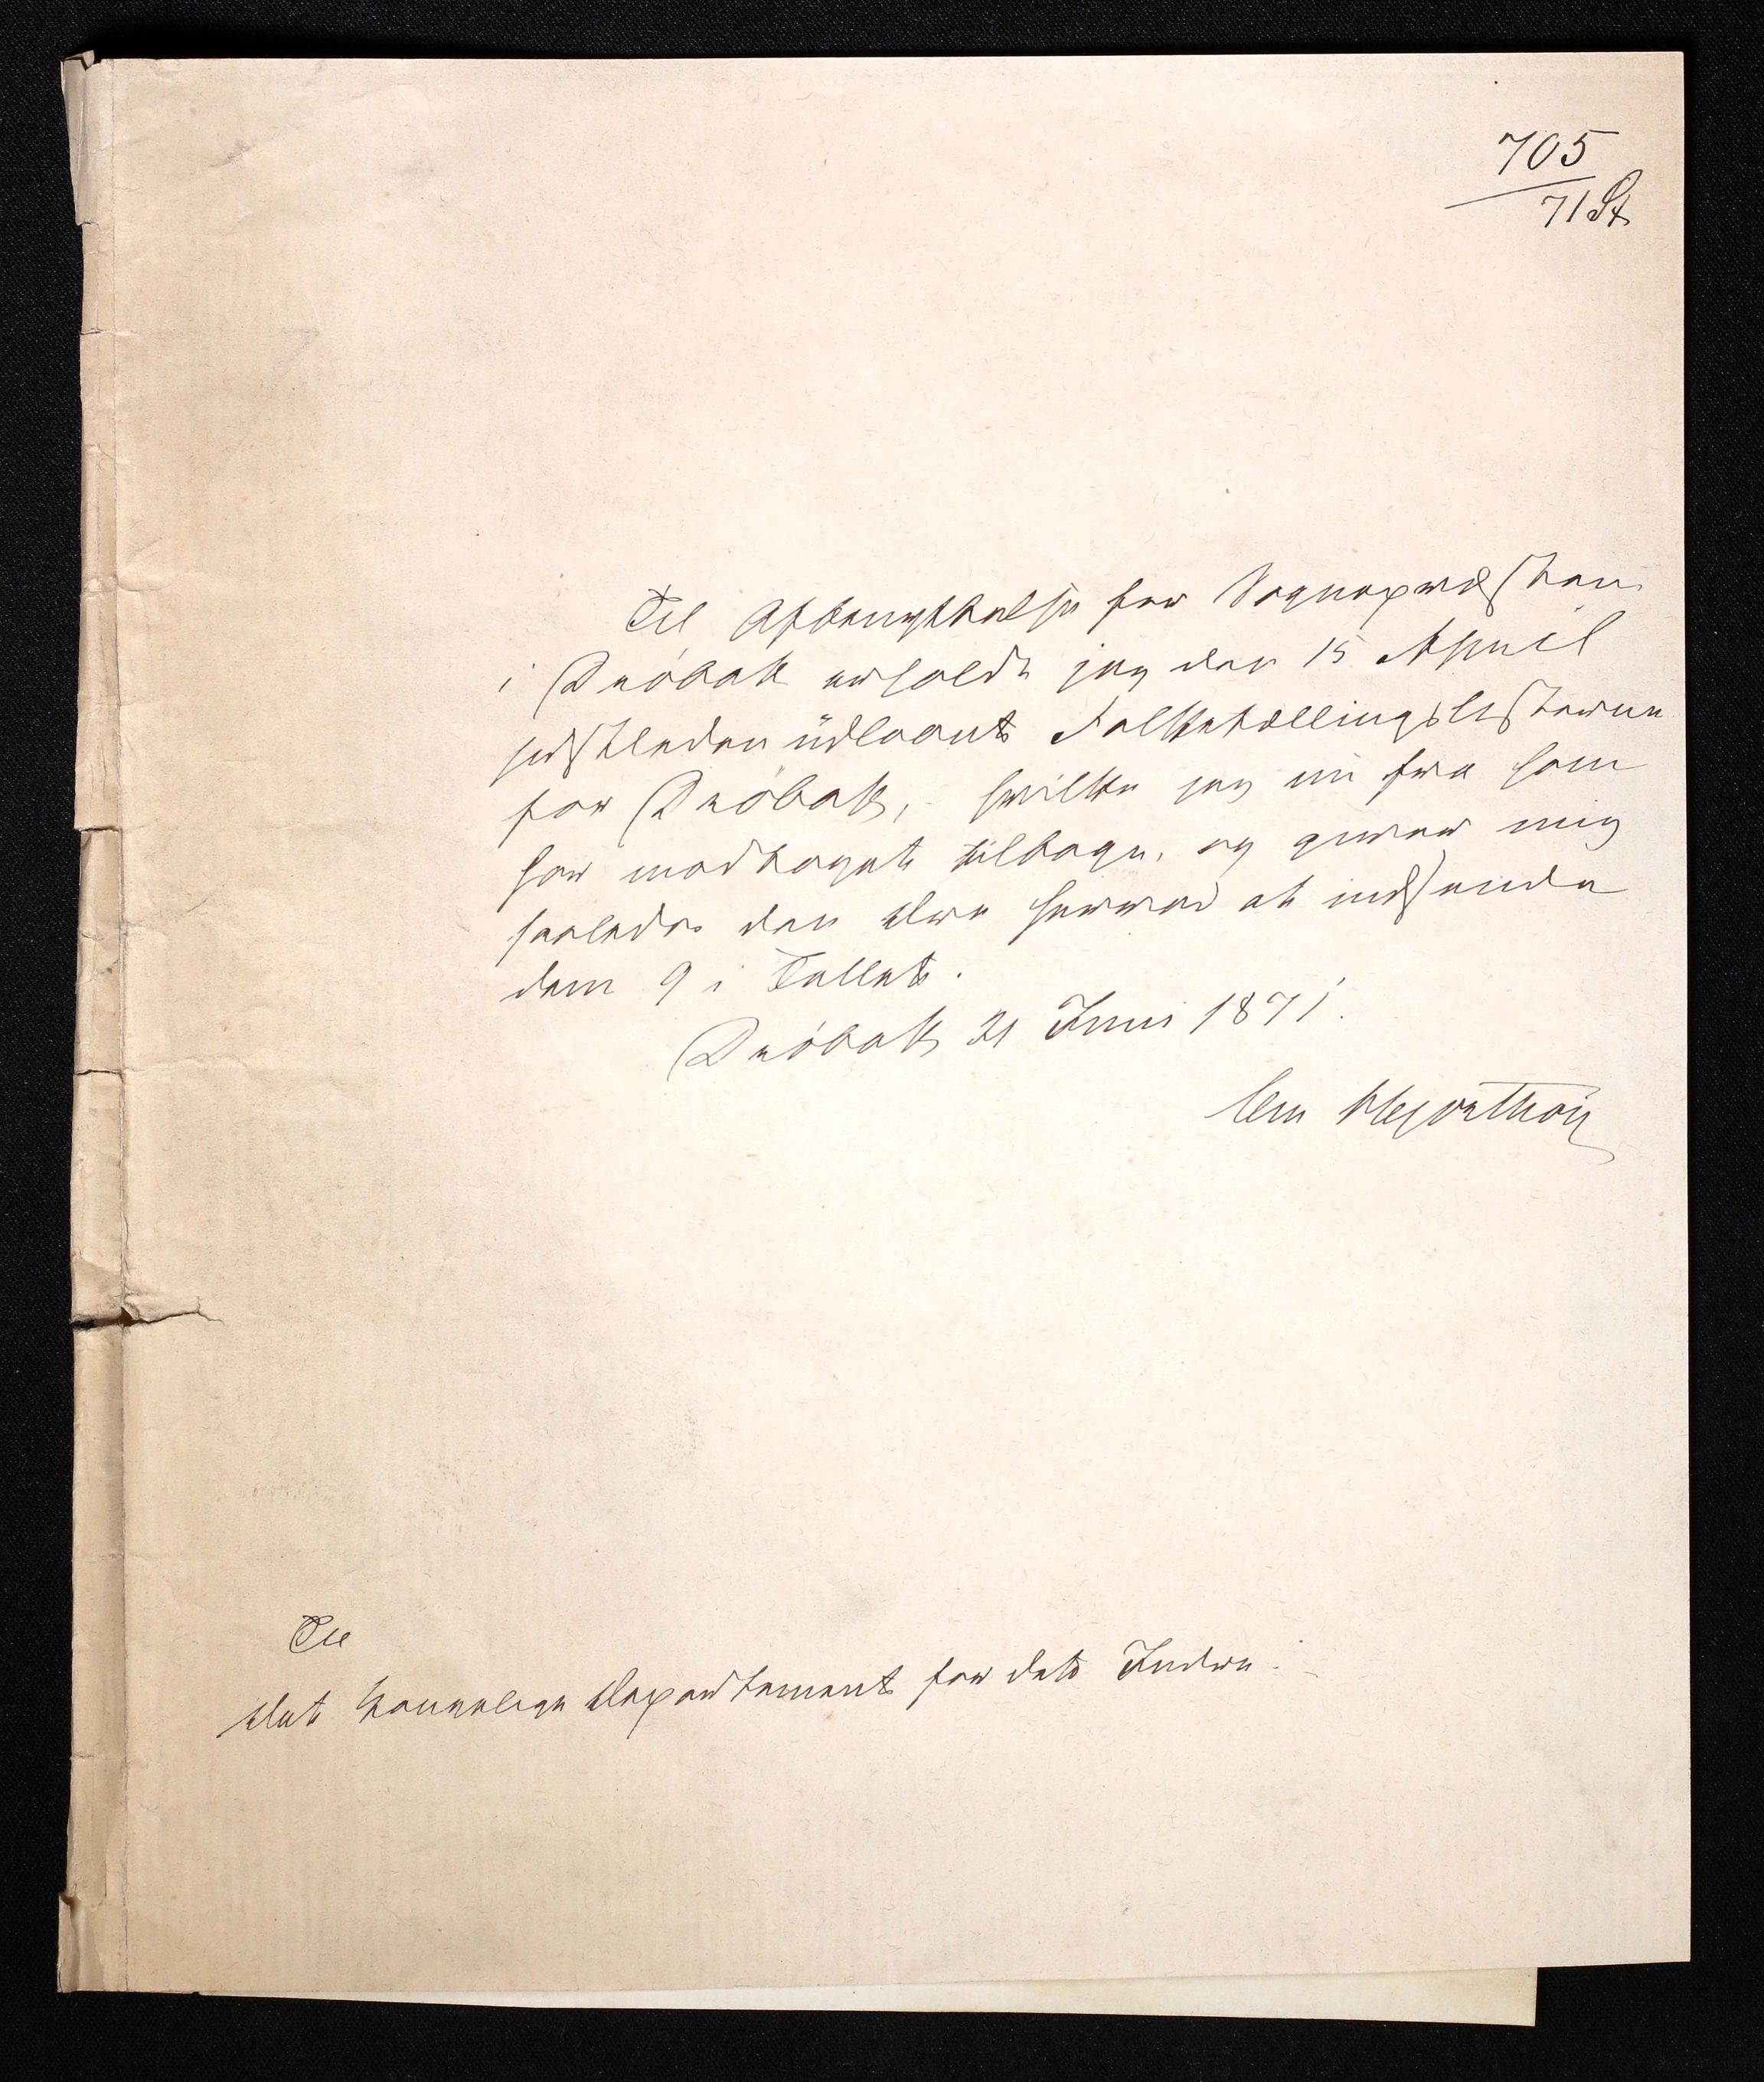 705
71 St
Til Afbenyttelse for Sognepresten
i Dröbak erholdt jeg den 15 April
sidstleden udlaant Folketællingslisterne
for Dröbak, hvilke jeg nu fra ham
har modtaget tilbage, og giver mig
saaledes den Ære herved at indsende
dem 9 i Tallet.
Dröbak 21 Juni 1871.
Til
Det Kongelige Departement for det Indre.